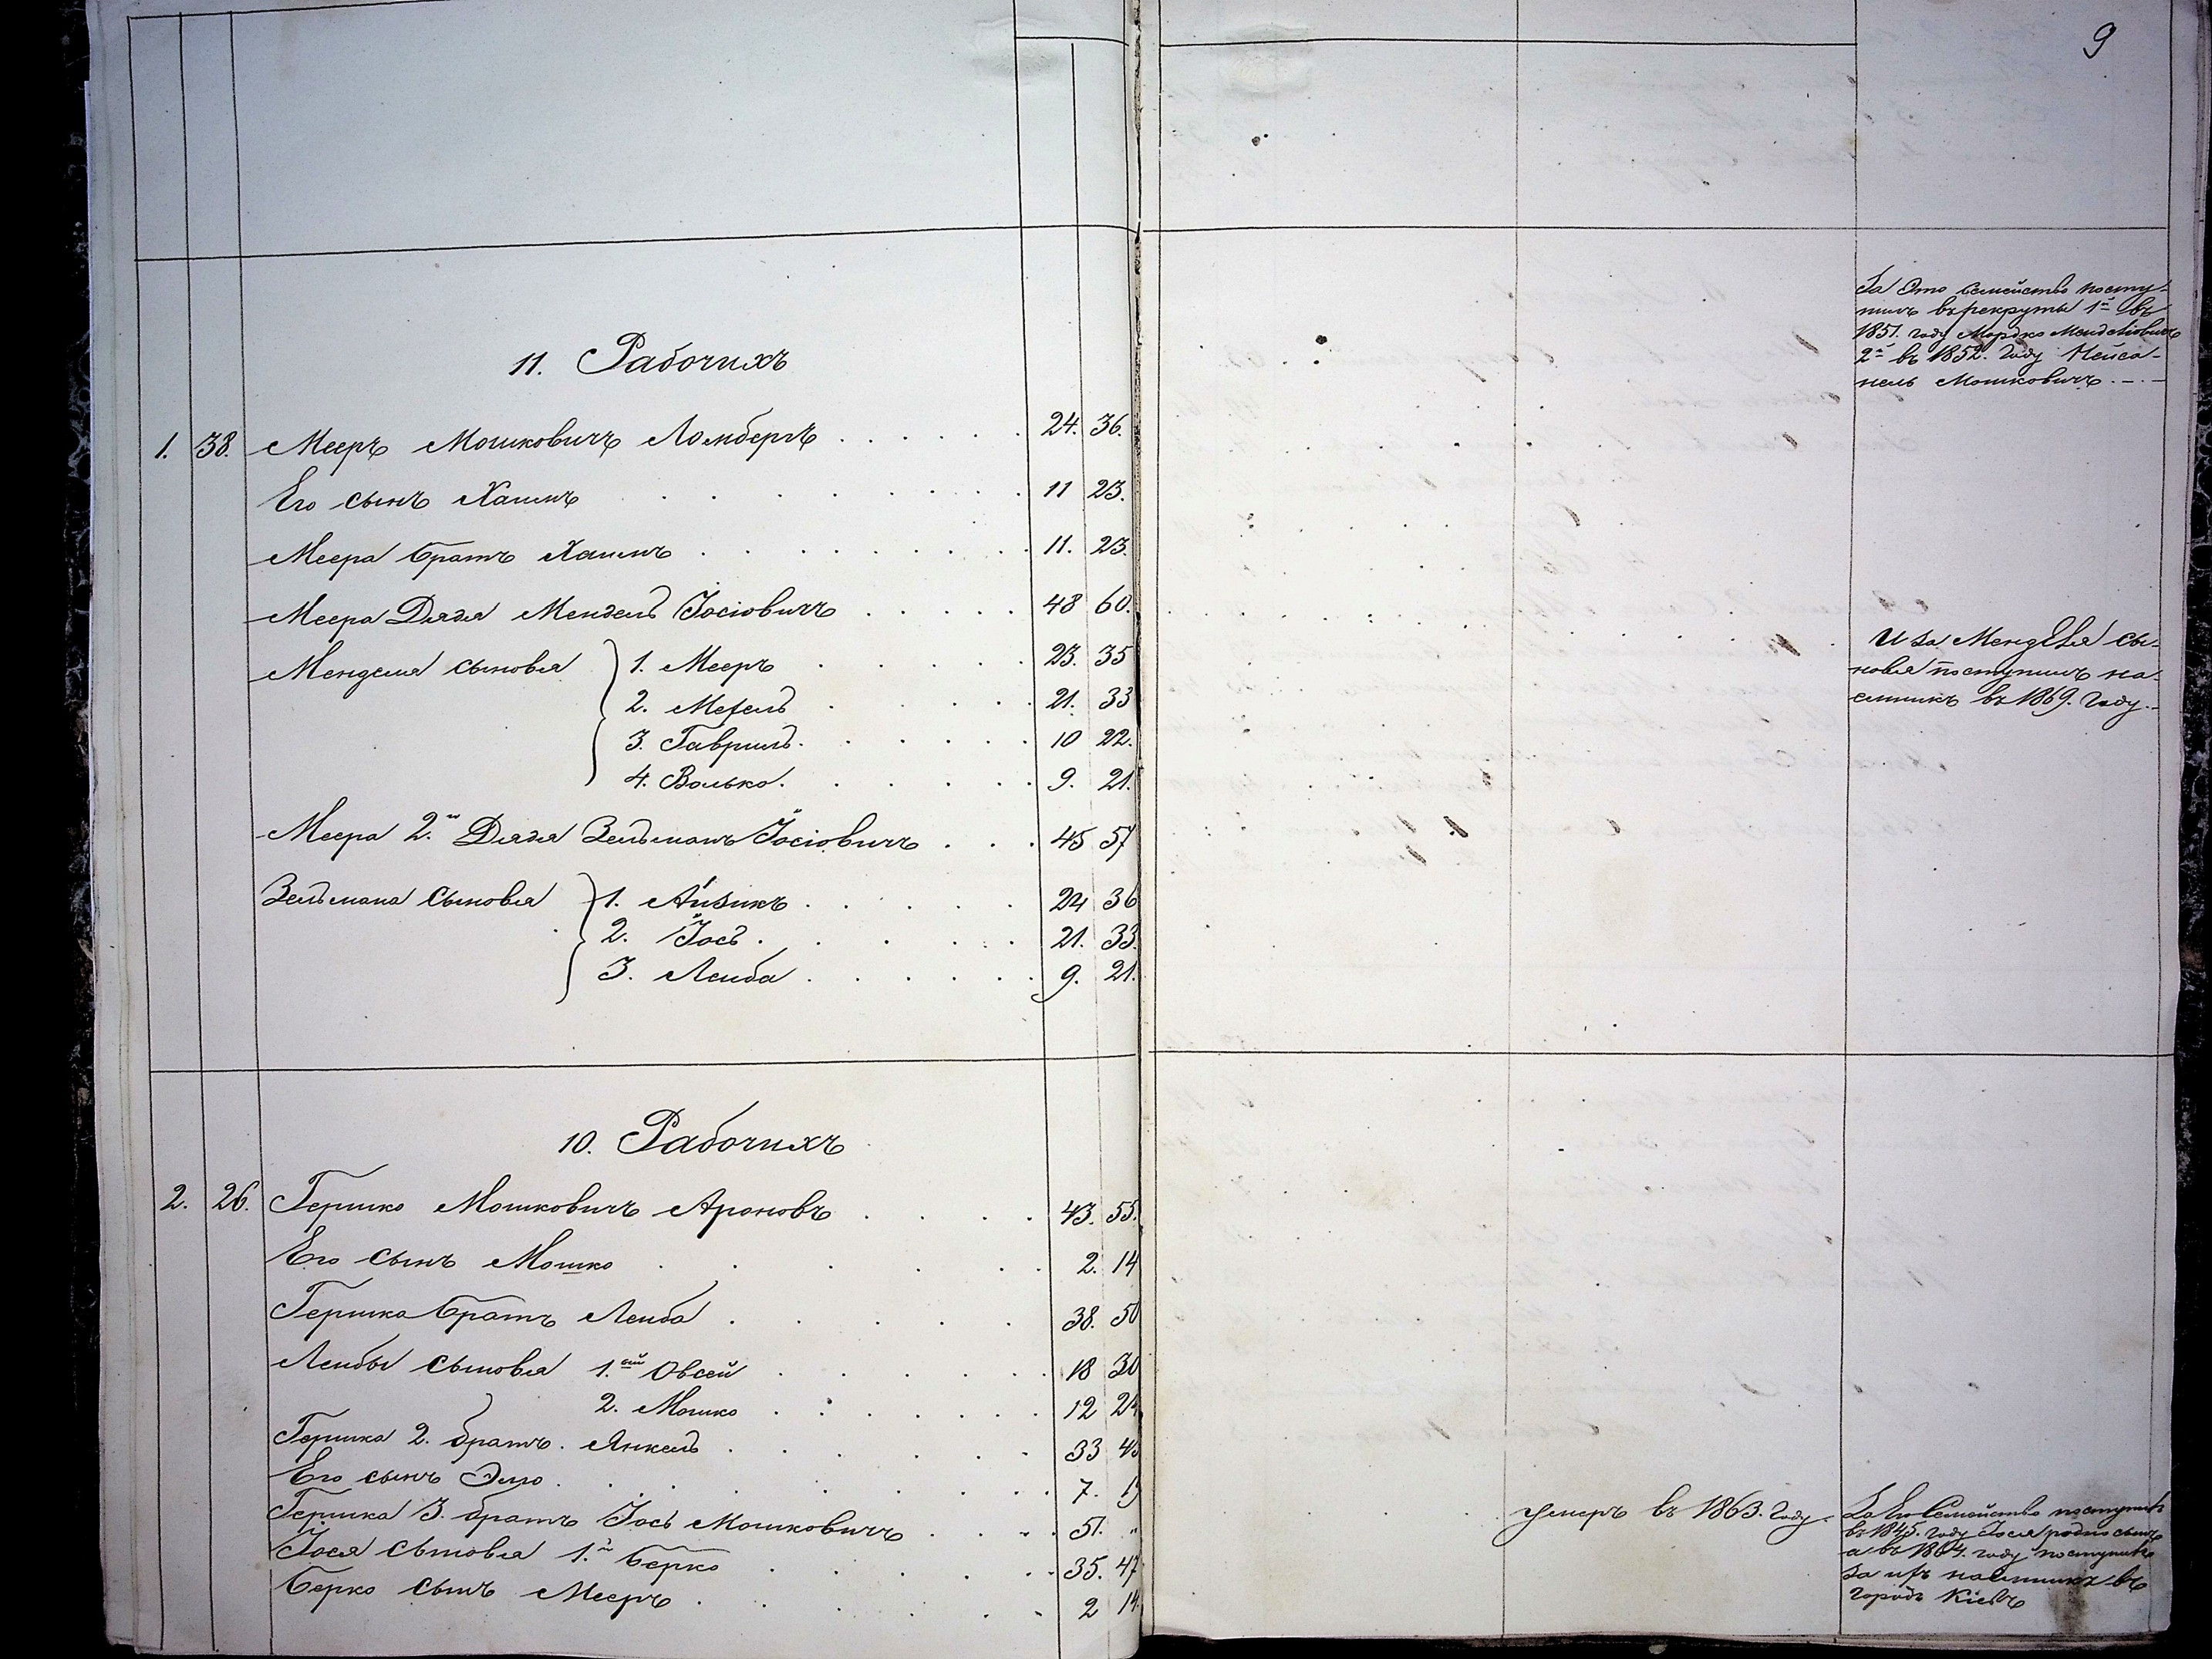 9
11. Рабочихъ
За Это Семейство посту-
пилъ въ рекруты 1й въ
1851. году Мордко Менделіовичъ
2й въ 1852. Году Нейса-
нель Мошковичъ. - . -
1. 38. Мееръ Мошковичъ Ломбергъ . . . . . . 24. 36.
Его сынъ Хаимъ . . . . . . . . 11 23.
Меера братъ Хаимъ . . . . . . . . 11. 23.
Меера Дядя Мендель Іосіовичъ . . . . . 48 60.
Менделя сыновья 1. Мееръ . . . . . 23. 35
2. Мехель . . . . . 21. 33
3. Гаврилъ . . . . . . 10 22.
4. Волько . . . . . . 9. 21.
И за Менделя сы-
новья поступилъ на-
емникъ въ 1869. Году. -
Меера 2.й Дядя Зельманъ Іосіовичъ . . . 45 57
Зельмана Сыновья 1. Айзикъ . . . . . 24 36
2. Іось . . . . . 21. 33.
3. Леиба . . . . . . 9. 21.
10. Рабочихъ
2. 26. Гершко Мошковичъ Ароновъ . . . . 43. 55.
Его сынъ Мошко . . . . . . 2. 14
Гершка братъ Леиба . . . . . 38. 50
Леибы сыновья 1.ый Овсей . . . . . . 18 30
2. Мошко . . . . . . . 12 24
Гершка 2. братъ. Янкель . . . . . . 33 45
Его сынъ Эльо . . . . . . . . 7. 19
Гершка 3. братъ Іось Мошковичъ . . . 51. "
умеръ въ 1863. Году.
За Его Семейство поступилъ
въ 1845. году Іося родно сынъ
а въ 1864. году поступилъ
за ихъ наемникъ въ
городѣ Кіевѣ
Іося сыновья 1.й Берко . . . . . . 35. 47
Берко сынъ Мееръ . . . . . . 2 14.